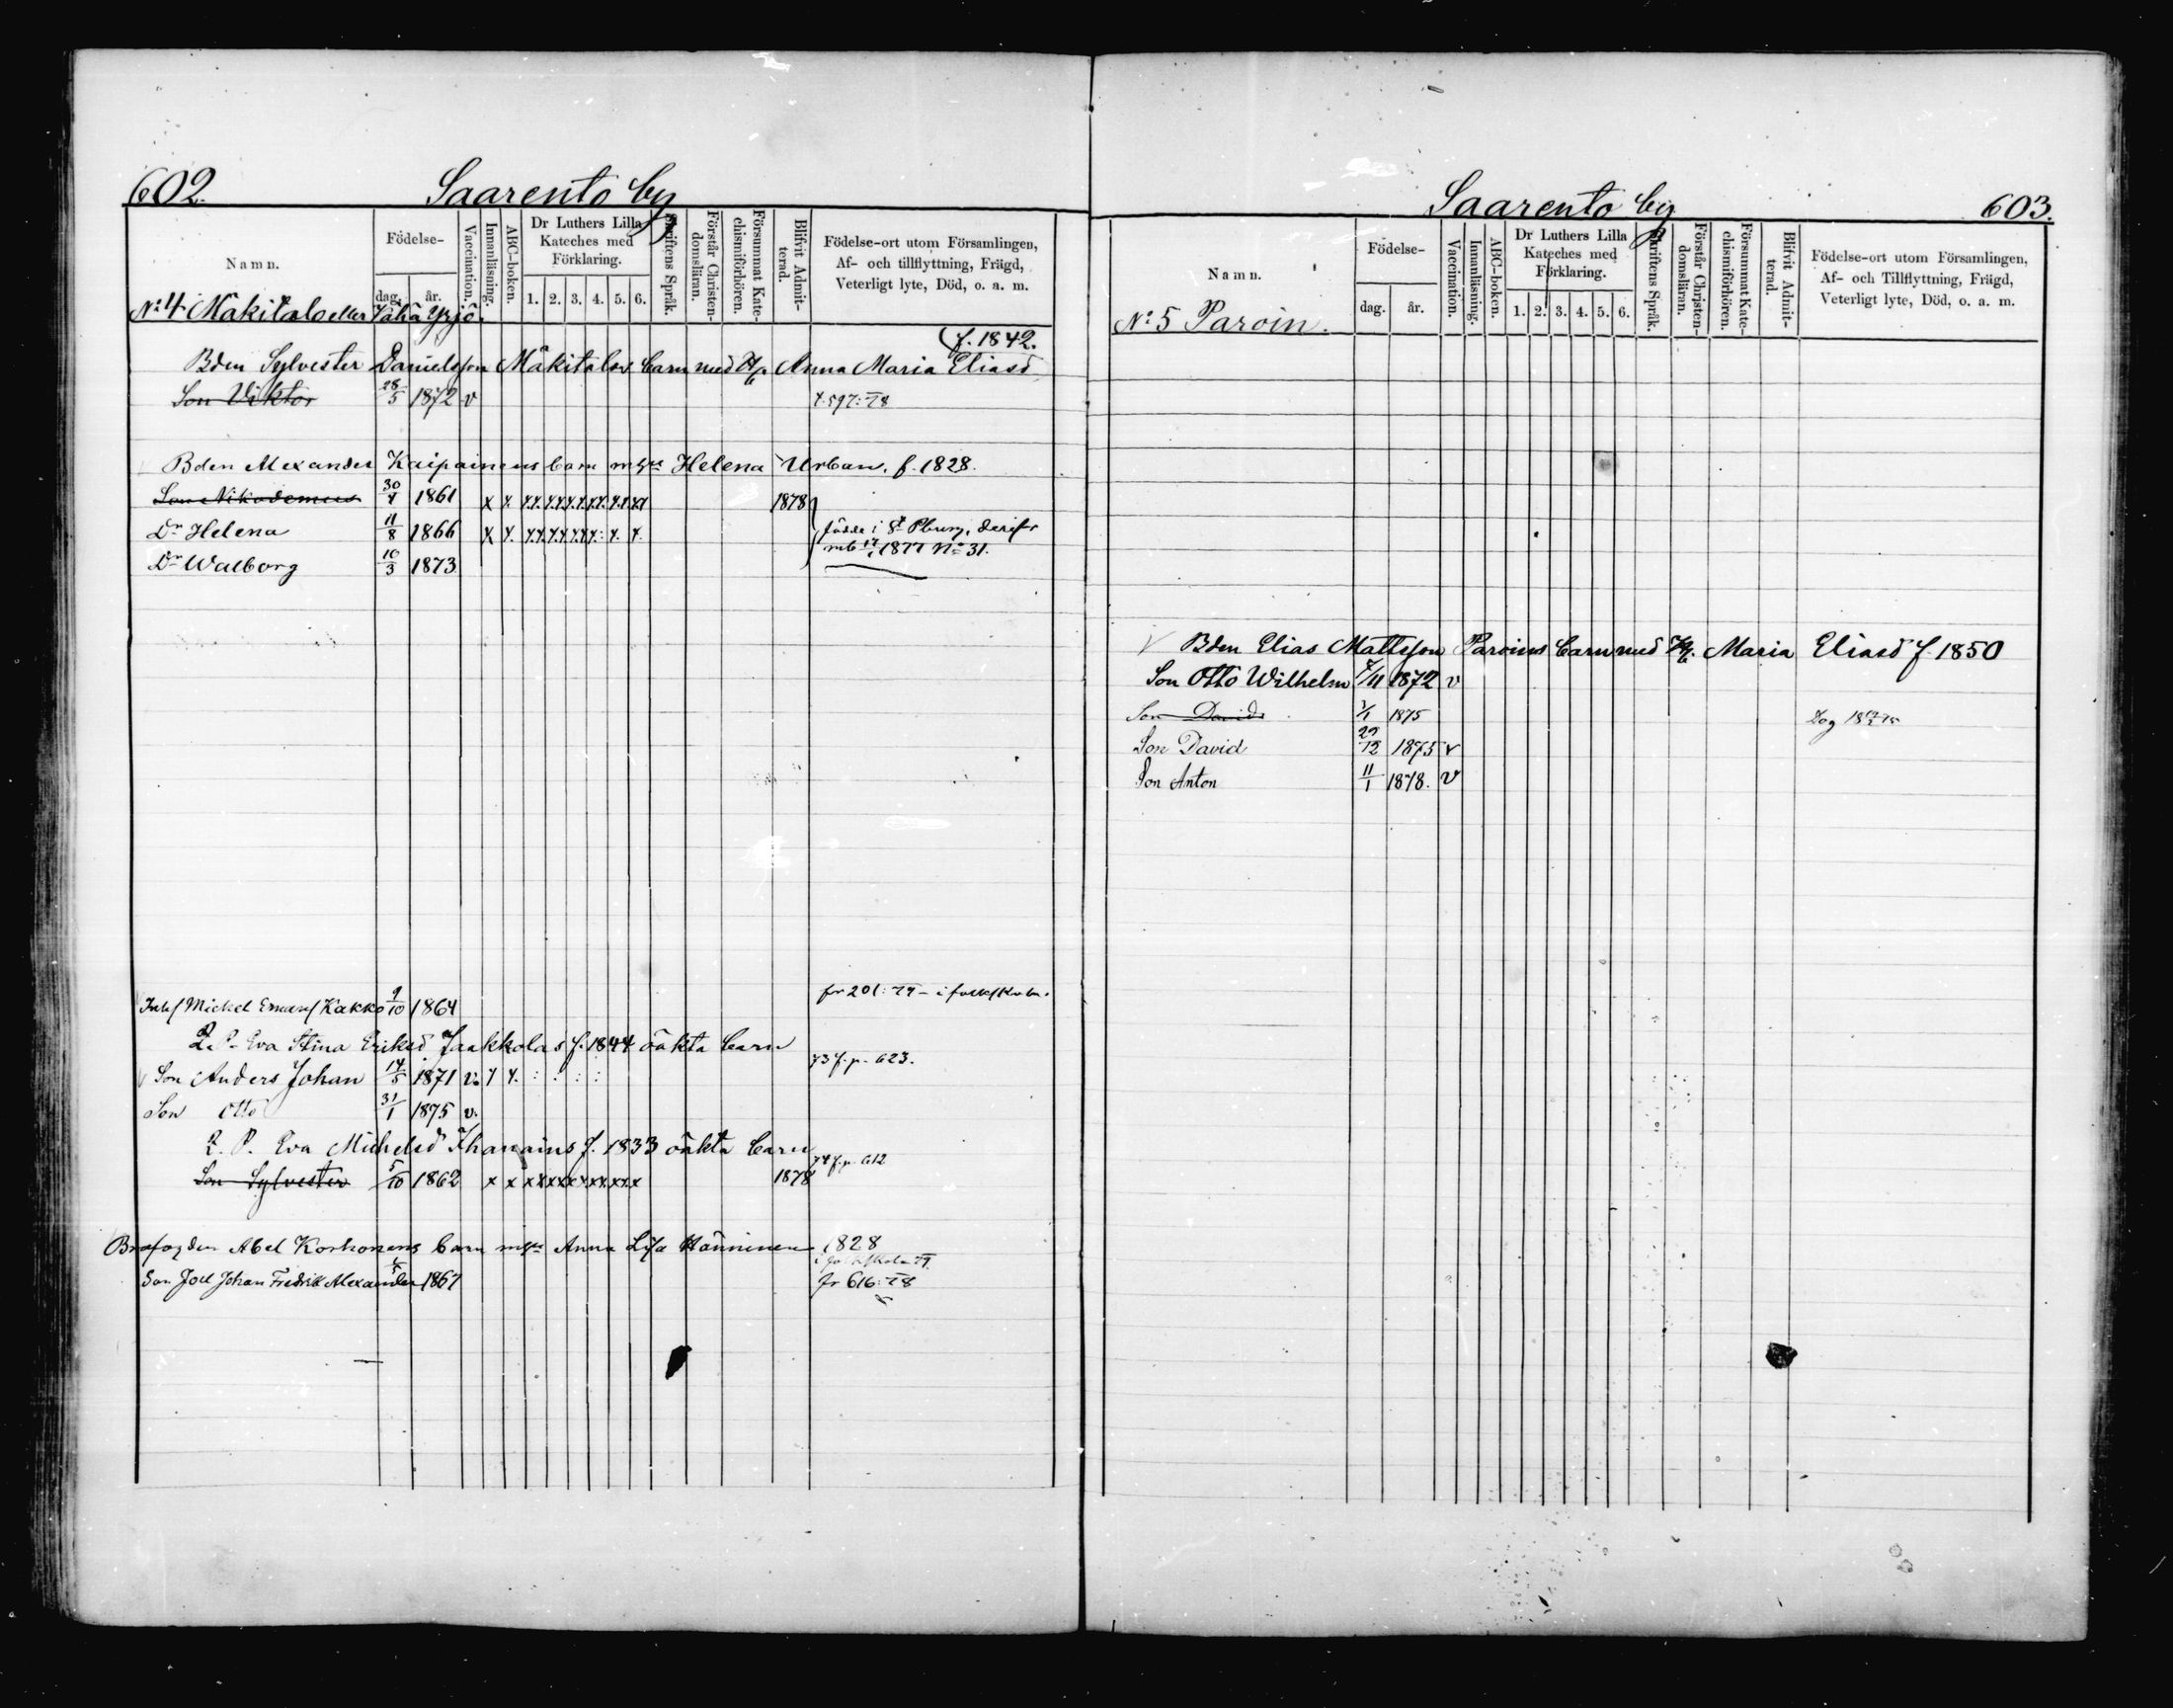 602.
Saarento by
Namn.
Födelse-
dag.
år.
Vaccination.
Innanläsning.
ABC-boken.
Dr Luthers Lilla
Kateches med
Förklaring.
1. 2. 3. 4. 5. 6.
Skriftens Språk.
Förstår Christen-
domsläran.
Försummat Kate-
chismiförhören.
Blifvit Admit-
terad.
Födelse-ort utom Församlingen,
Af- och tillflyttning, Frägd,
Veterligt lyte, Död, o. a. m.
No 4 Mäkitalo eller Vähä Yrjö.
f. 1842.
Bden Sylvester Danielsson Mäkitalos barn med Anna Maria Eliasd
Son Viktor 28/5 1872 v
Bden Alexander Kaipainens barn Helena Urban. f. 1828.
Son Nikodemus 30/4 1861 1878
Dr Helena 11/8 1866 födde i St Pburg, derifr
Dr Walborg 10/3 1873 1877 No 31.
Mickel Kakko 9/10 1864 fr 201:
Eva Stina Eriksd Jaakkolas f. 1844 oäkta barn
73 f. p. 623.
Son Anders Johan 14/5 1871 v.
Son Otto 31/1 1875 v.
Eva Michelsd Ihanains f. 1833 oäkta barn
74 f. p. 612
Son Sylvester 5/10 1862 x x x x x x x x x x x 1878
Abel Korhonens barn Anna Lisa Hänninen 1828
Son Joel Johan Fredrik Alexander 1867 fr 616:78
Saarento by
603.
Namn.
Födelse-
dag.
år.
Vaccination.
Innanläsning.
ABC-boken.
Dr Luthers Lilla
Kateches med
Förklaring.
1. 2. 3. 4. 5. 6.
Skriftens Språk.
Förstår Christen-
domsläran.
Försummat Kate-
chismiförhören.
Blifvit Admit-
terad.
Födelse-ort utom Församlingen,
Af- och Tillflyttning, Frägd,
Veterligt lyte, Död, o. a. m.
No 5 Paroin.
Bden Elias Mattsson Paroins barn med Maria Eliasd f. 1850
Son Otto Wilhelm 1872 v
Son David 1875
Son David 1875 v
Son Anton 11/1 1878. v